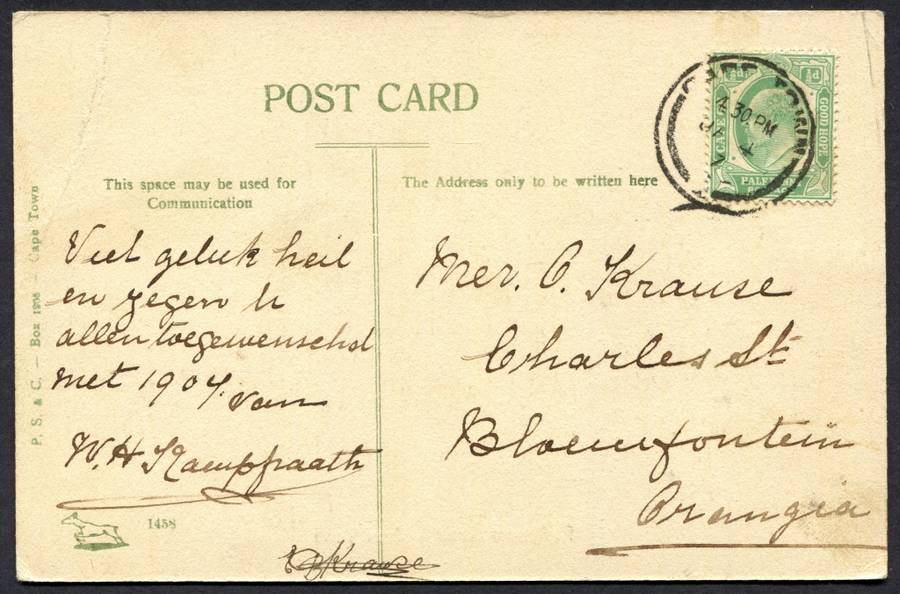 POST CARD
This space may be used for
Communication
The Address only to be written here
P. S. & C. — Box 1208 — Cape Town
Veel geluk heil
en zegen U
allen toegewenschd
met 1907. van
W. H. Kampfraath
1458
Mer. O. Krause
Charles St
Bloemfontein
Orangia
Krause
CAPE TOWN
4.30 PM
JA 4
7
½d ½d
GOOD HOPE